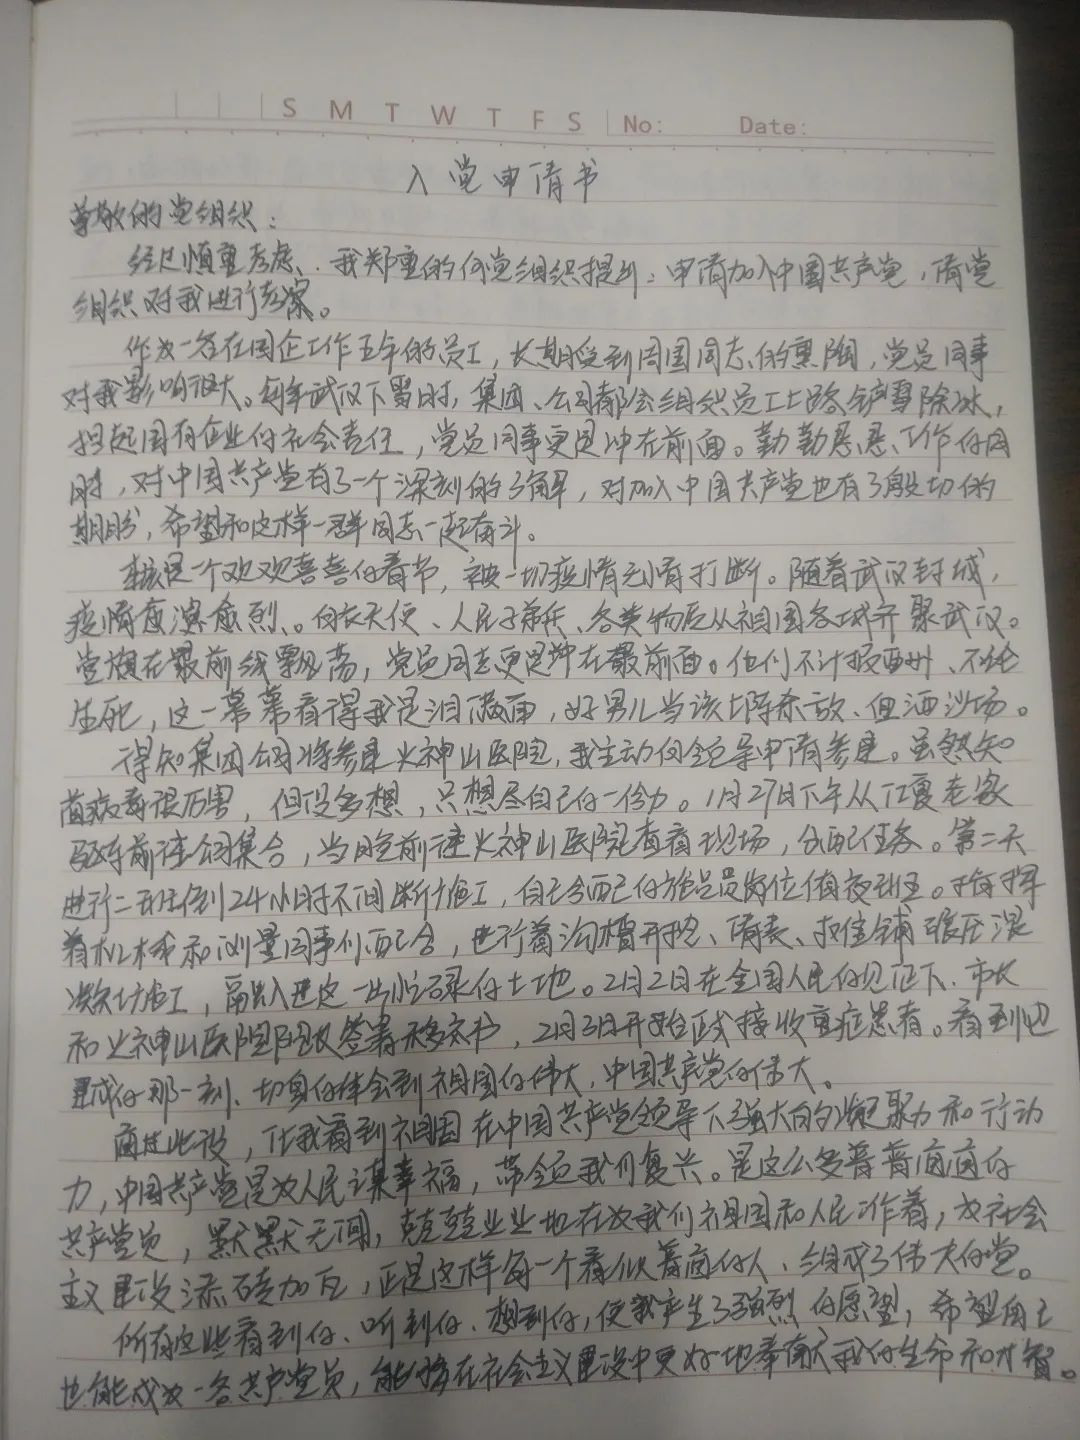 S M T W T F S No: Date:
入党申请书
尊敬的党组织：
经过慎重考虑，我郑重的向党组织提出：申请加入中国共产党，请党
组织对我进行考察。
作为一名在国企工作五年的员工，长期受到周围同志的熏陶，党员同事
对我影响很大。每年武汉下雪时，集团、公司都会组织员工上路铲雪除冰，
担起国有企业的社会责任，党员同事更是冲在前面。勤勤恳恳工作的同
时，对中国共产党有了一个深刻的了解，对加入中国共产党也有了殷切的
期盼，希望和这样一群同志一起奋斗。
本该是一个欢欢喜喜的春节，被一切疫情无情打断。随着武汉封城，
疫情愈演愈烈、白衣天使、人民子弟兵、各类物资从祖国各域齐聚武汉。
党旗在最前线飘荡，党员同志更是冲在最前面。他们不计报酬、不论
生死，这一幕幕看得我是泪满面，好男儿当该上阵杀敌、血洒沙场。
得知集团公司将参建火神山医院，我主动向领导申请参建。虽然知
道病毒很厉害，但没多想，只想尽自己的一份力。1月27日下午从江夏老家
驱车前往公司集合，当晚前往火神山医院查看现场，分配任务。第二天
进行二班倒24小时不间断施工，自己分配的施工员岗位值夜班。指挥
着机械和测量同事们配合，进行着沟槽开挖、清表、摊铺碾压混
凝土施工，融入进这一片忙碌的土地。2月2日在全国人民的见证下，市长
和火神山医院院长签署移交书，2月3日开始正式接收重症患者。看到它
建成的那一刻、切身的体会到祖国的伟大，中国共产党的伟大。
通过此役，让我看到祖国在中国共产党领导下强大的凝聚力和行动
力，中国共产党是为人民谋幸福，带领我们复兴。是这么多普普通通的
共产党员，默默无闻，兢兢业业地在为我们祖国和人民工作着，为社会
主义建设添砖加瓦，正是这样每一个看似普通的人、组成了伟大的党。
所有这些看到的、听到的、想到的，使我产生了强烈的愿望，希望自己
也能成为一名共产党员，能够在社会主义建设中更好地奉献我的生命和才智。